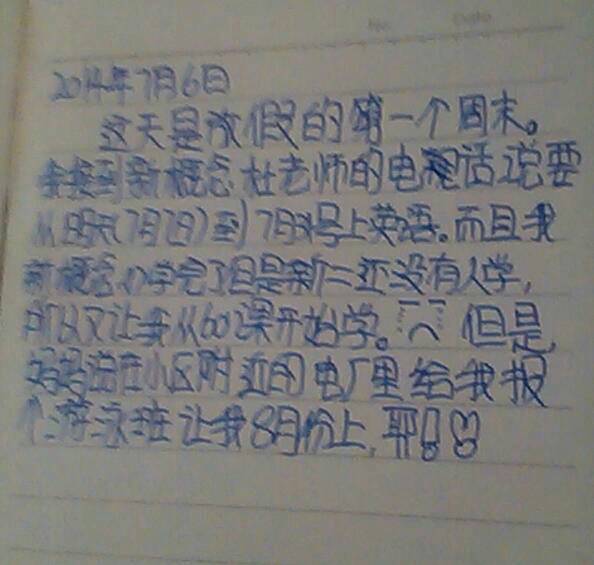 2014年7月6日
这天是放假的第一个周末。
接到新概念杜老师的电话说要
从明天(7月7日)到7月号上英语。而且我
新概念1学完了但是新二还没有人学,
所以又让我从60课开始学。但是,
妈妈说在小区附近的电厂里给我报
个游泳班让我8月份上,耶!